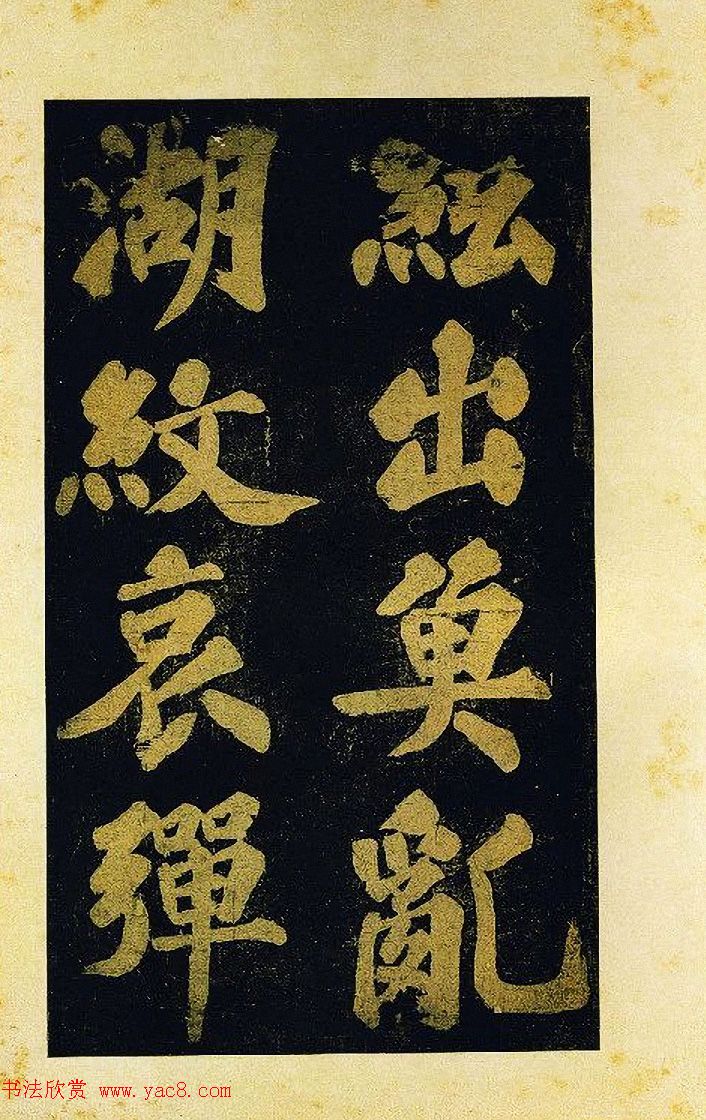 絃出𩵋亂
湖紋哀彈
书法欣赏 www.yac8.com